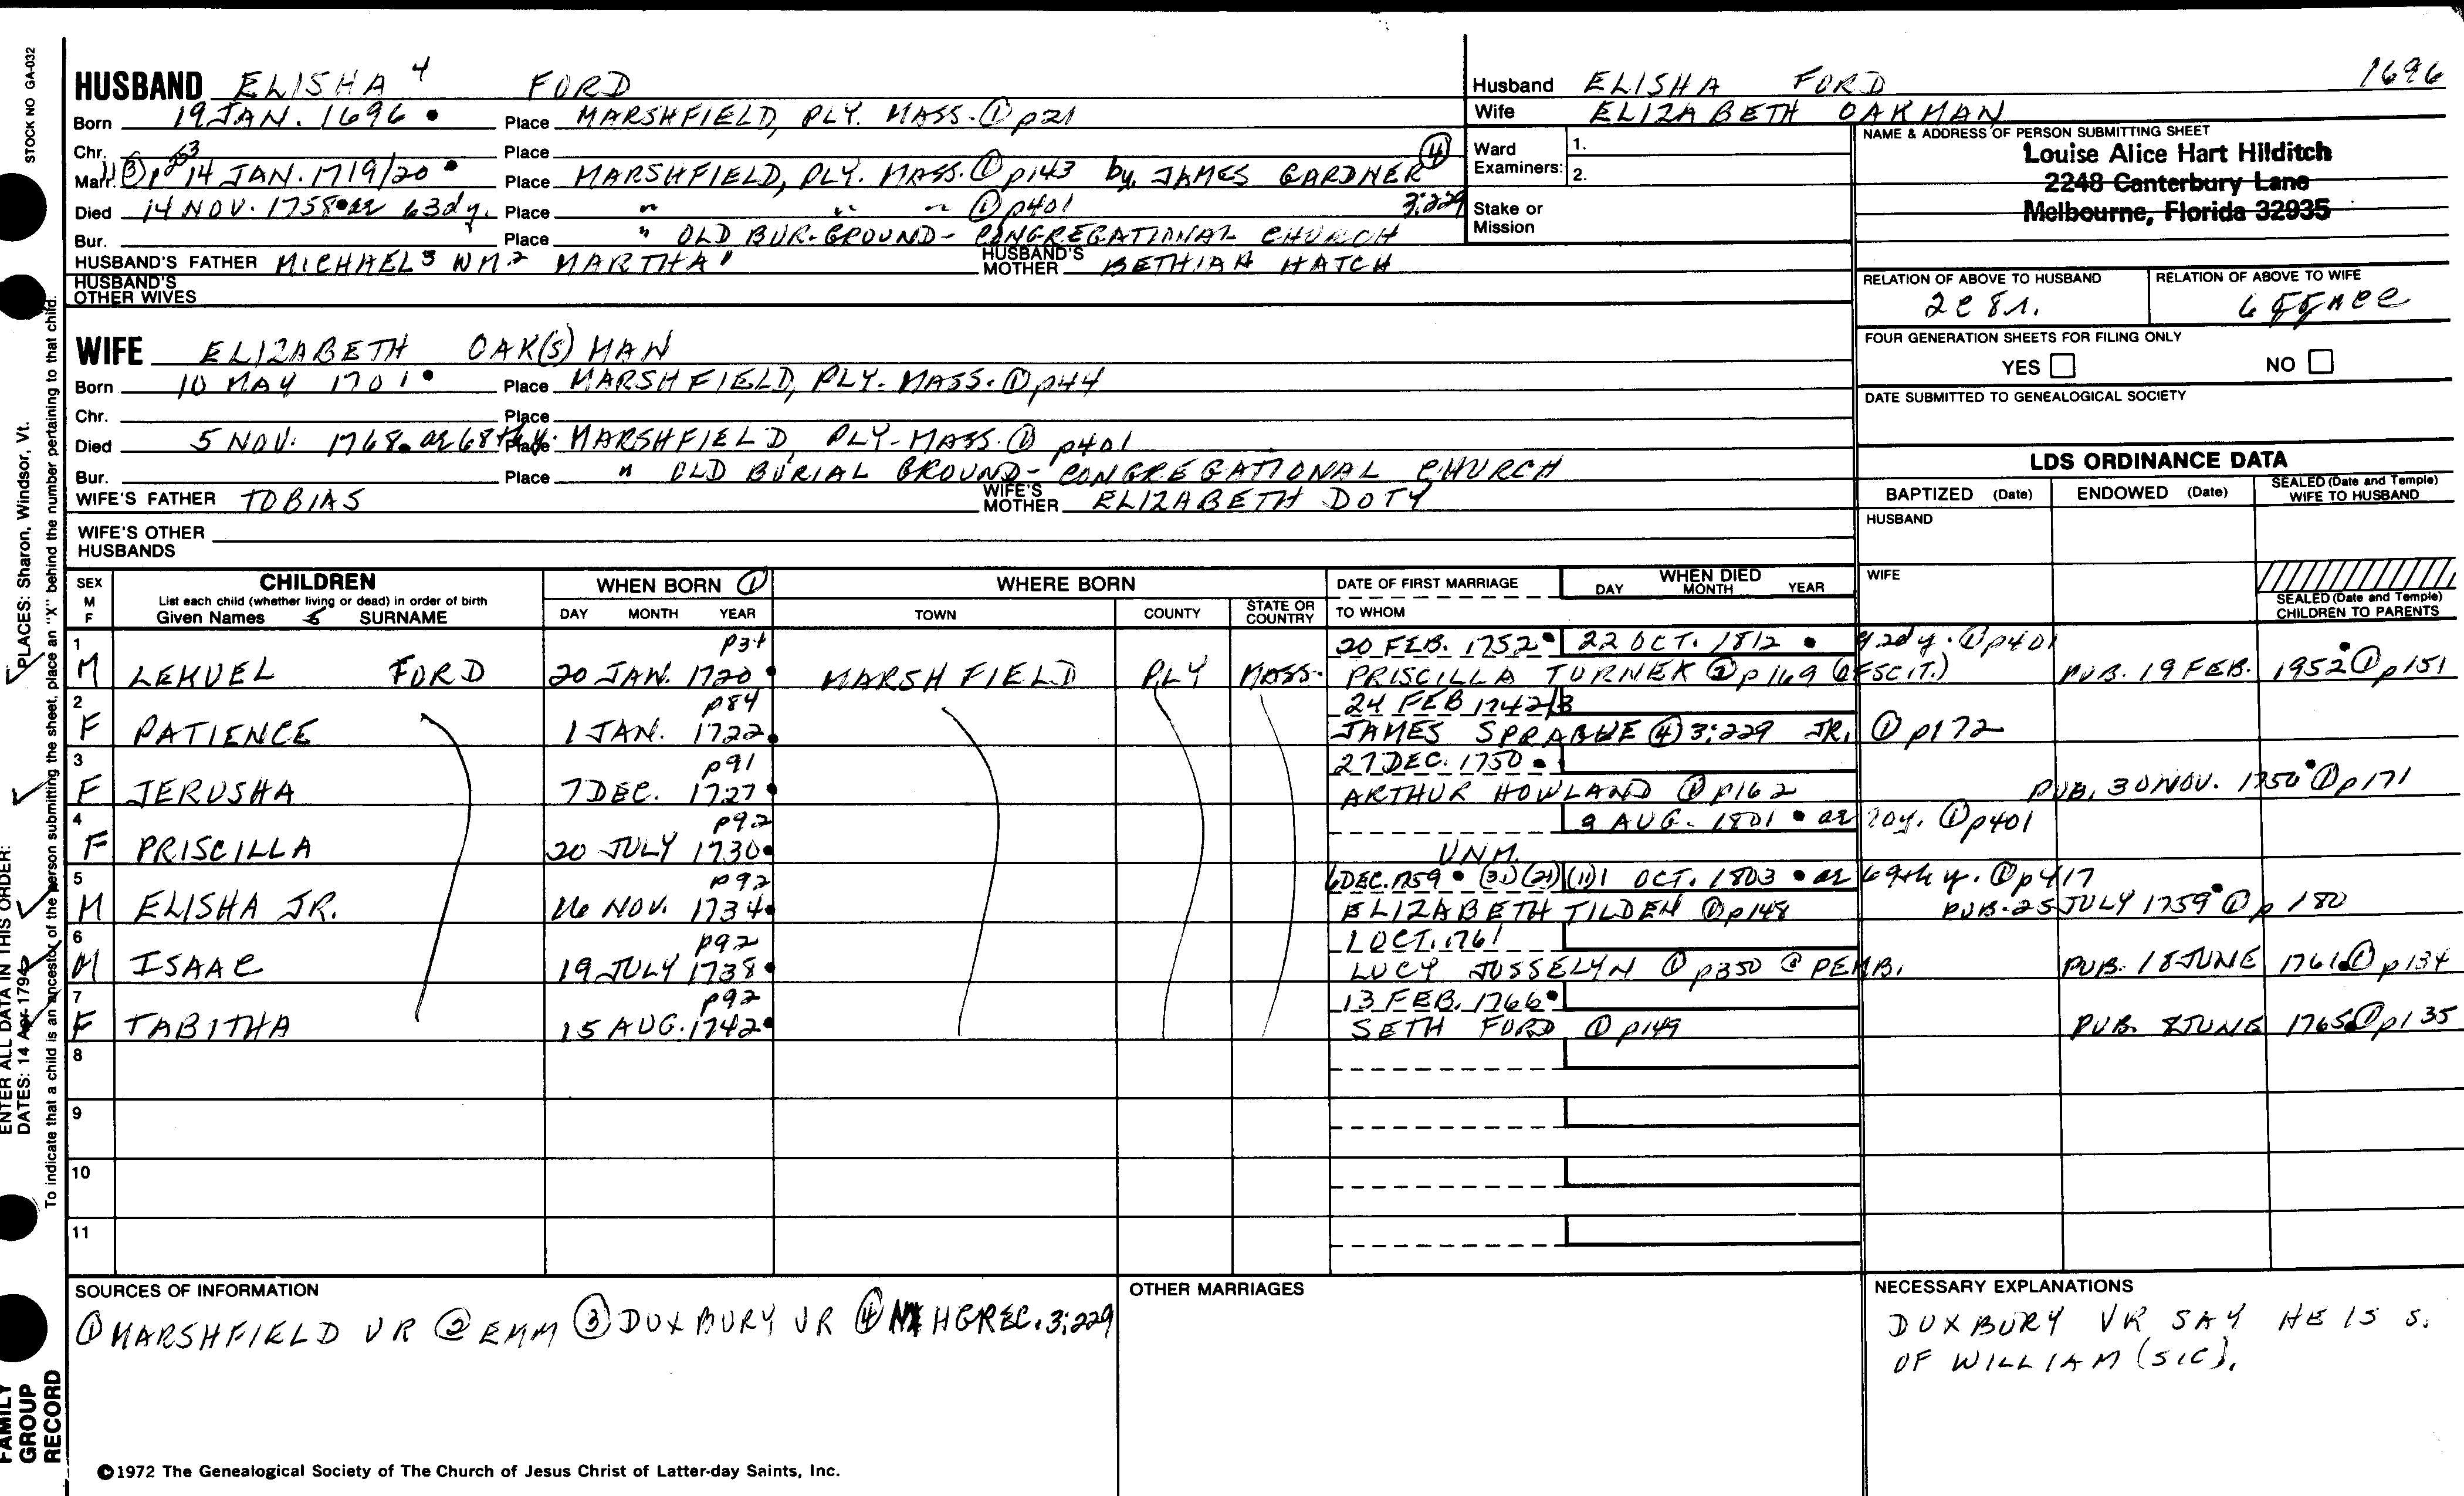 STOCK NO GA-032
HUSBAND ELISHA 4 FORD
Born 19 JAN. 1696 • Place MARSHFIELD, PLY. MASS. ① p21
Chr. Place
Marr. ③ p 253 14 JAN. 1719/20 • Place MARSHFIELD, PLY. MASS. ① p143 by JAMES GARDNER ④
Died 14 NOV. 1758 • ae 63dy. Place " " " ① p401 3:229
Bur. Place " OLD BUR. GROUND - CONGREGATIONAL CHURCH
HUSBAND'S FATHER MICHAEL 3 WM 2 MARTHA 1 HUSBAND'S MOTHER BETHIAH HATCH
HUSBAND'S OTHER WIVES
WIFE ELIZABETH OAK(S)MAN
Born 10 MAY 1701 • Place MARSHFIELD, PLY. MASS. ① p44
Chr. Place
Died 5 NOV. 1768 • ae 68th y. Place MARSHFIELD PLY. MASS. ① p401
Bur. Place " OLD BURIAL GROUND - CONGREGATIONAL CHURCH
WIFE'S FATHER TOBIAS WIFE'S MOTHER ELIZABETH DOTY
WIFE'S OTHER HUSBANDS
Husband ELISHA FORD 1696
Wife ELIZABETH OAKMAN
Ward Examiners: 1.
2.
Stake or Mission
NAME & ADDRESS OF PERSON SUBMITTING SHEET
Louise Alice Hart Hilditch
2248 Canterbury Lane
Melbourne, Florida 32935
RELATION OF ABOVE TO HUSBAND RELATION OF ABOVE TO WIFE
FOUR GENERATION SHEETS FOR FILING ONLY
YES NO
DATE SUBMITTED TO GENEALOGICAL SOCIETY
LDS ORDINANCE DATA
BAPTIZED (Date) ENDOWED (Date) SEALED (Date and Temple) WIFE TO HUSBAND
HUSBAND
WIFE
SEALED (Date and Temple) CHILDREN TO PARENTS
SEX M F CHILDREN List each child (whether living or dead) in order of birth Given Names SURNAME
WHEN BORN ① DAY MONTH YEAR
WHERE BORN TOWN COUNTY STATE OR COUNTRY
DATE OF FIRST MARRIAGE TO WHOM
WHEN DIED DAY MONTH YEAR
1 p34 20 FEB. 1752 • 22 OCT. 1812 • 92dy. ① p401
M LEMUEL FORD 20 JAN. 1720 • MARSHFIELD PLY MASS. PRISCILLA TURNER ② p169 (@ SCIT.) PUB. 19 FEB. 1952 • ① p151
2 p84 24 FEB 1742/3
F PATIENCE 1 JAN. 1722 • JAMES SPRAGUE ④ 3:229 JR. ① p172
3 p91 27 DEC. 1750 •
F JERUSHA 7 DEC. 1727 • ARTHUR HOWLAND ① p162 PUB. 30 NOV. 1750 • ① p171
4 p92 AUG. 1801 • ae 70y. ① p401
F PRISCILLA 20 JULY 1730 • UNM.
5 p92 6 DEC. 1759 • (3) (21) (11) 1 OCT. 1803 • ae 69th y. ① p417
M ELISHA JR. 16 NOV. 1734 • ELIZABETH TILDEN ① p148 PUB. 25 JULY 1759 • ① p 180
6 p92 1 OCT. 1761
M ISAAC 19 JULY 1738 • LUCY JOSSELYN ① p350 @ PEMB. PUB. 18 JUNE 1761 • ① p134
7 p92 13 FEB. 1766 •
F TABITHA 15 AUG. 1742 • SETH FORD ① p149 PUB. 8 JUNE 1765 • ① p135
8
9
10
11
SOURCES OF INFORMATION
① MARSHFIELD VR ② EMM ③ DUXBURY VR ④ HGREC. 3:229
OTHER MARRIAGES
NECESSARY EXPLANATIONS
DUXBURY VR SAY HE IS S.
OF WILLIAM (SIC).
©1972 The Genealogical Society of The Church of Jesus Christ of Latter-day Saints, Inc.
FAMILY GROUP RECORD
ENTER ALL DATA IN THIS ORDER:
DATES: 14 Apr 1794
PLACES: Sharon, Windsor, Vt.
To indicate that a child is an ancestor of the person submitting the sheet, place an "X" behind the number pertaining to that child.